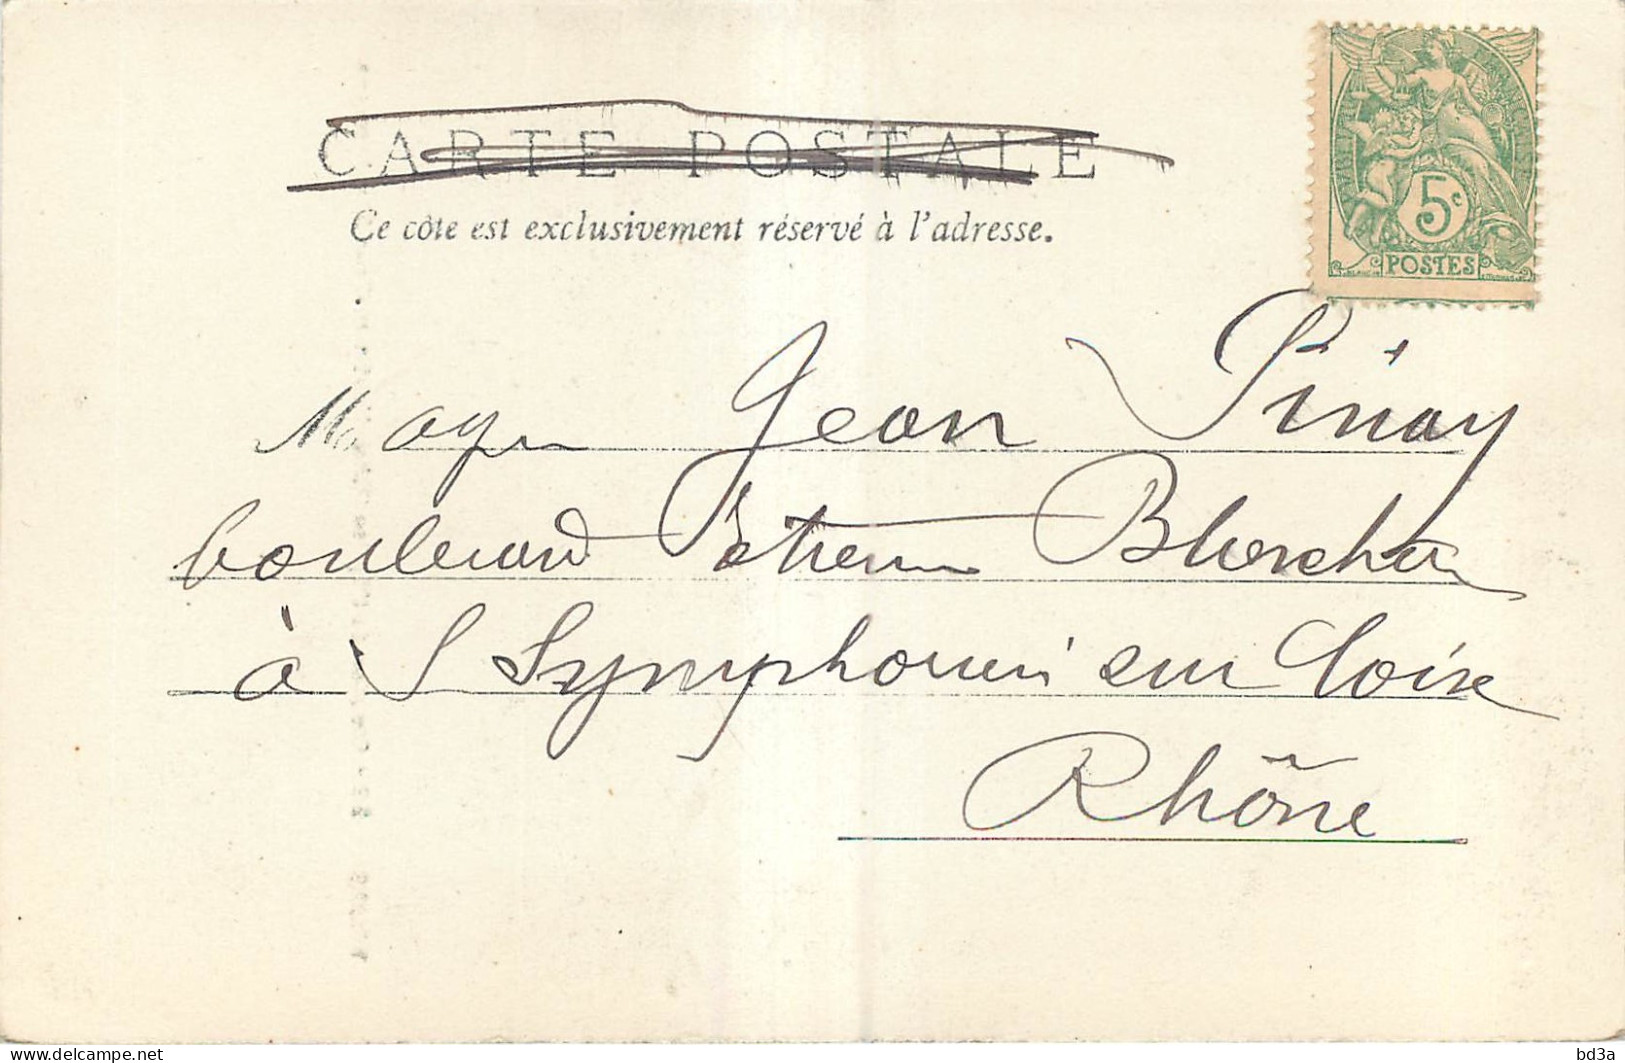 CARTE POSTALE
Ce côté est exclusivement réservé à l'adresse.
5c
POSTES
Jean Pinay
boulevard
à S Symphorien sur Loire
Rhône
www.delcampe.net
bd3a